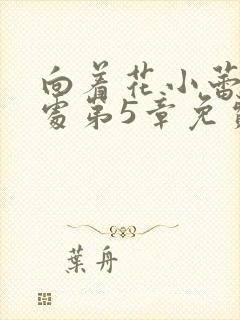 向着花小蕾
处第5章免
葉舟